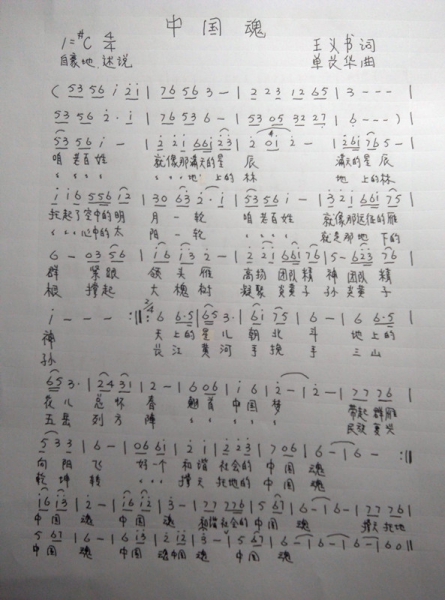 中国魂
1=#C 4/4 王义书词
自豪地 述说 单长华曲
( 53 56 i 2 i | 76 56 3 - | 2 2 3 12 65 | 3 - - - |
53 56 2 · i | 76 53 6 - | 53 05 32 27 | 6 - - - ) |
53 56 i - | 2 2i 66i 23 | 2 0i 2 - | 26i 76 5 - |
咱老百姓 就像那满天的星 辰 满天的星辰
地上的林 地上的林
i i 6 556 i2 | 30 63 2 · i | 53 56 i - | 3 2i 66i 75 |
托起了空中的明 月一轮 咱老百姓 就像那远征的雁
心中的太 阳一轮 就是那地下的
6 - 03 56 | i6 i3 2 - | 2 2i 66i 76 | 5 - 623 76 |
群 紧跟 领头雁 高扬团队精 神 团队精
根 撑起 大槐树 凝聚炎黄子 孙 炎黄子
i - - - :|| 2/4 6 6·5 | 65 3· | 6i 75 | 6 - | 6 6·5 |
神 天上的 星儿 朝北 斗 地上的
孙 长江 黄河 手挽 手 三山
65 3· | 24 31 | 2 - | 6 06 | i 6 | 2 - | 2 - | 77 76 |
花儿 总怀 春 中国 梦 带起群雁
五岳 列方 阵
5 33 | 6 - | 06 61 | 2 i | 2 23 | 7 06 | 6 - | 6 - :||
向阳 飞 好一个 和谐 社会的 中国 魂
乾坤 转 撑天 托地的 中国 魂
i6 i3 | 2 - | i6 i2 | 3 - | 77 776 | 5 67 | 6 - | 6 - | 77 76 |
中国 魂 中国 魂 和谐社会的 中国 魂 撑天托地
5 67 | 6 - | i6 i3 | 2 i2 | 3 - | 5 67 | 6 - | 6 - | 6 - | 60 ||
中国 魂 中国 魂中国 魂 中国 魂